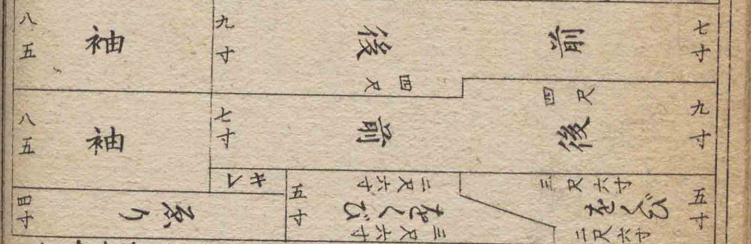 八五
袖
九寸
後
四尺
前
七寸
八五
袖
七寸
前
四尺
後
九寸
キレ
四寸
ゑり
五寸
二尺六寸
をくび
三尺六寸
三尺六寸
をくび
二尺六寸
五寸